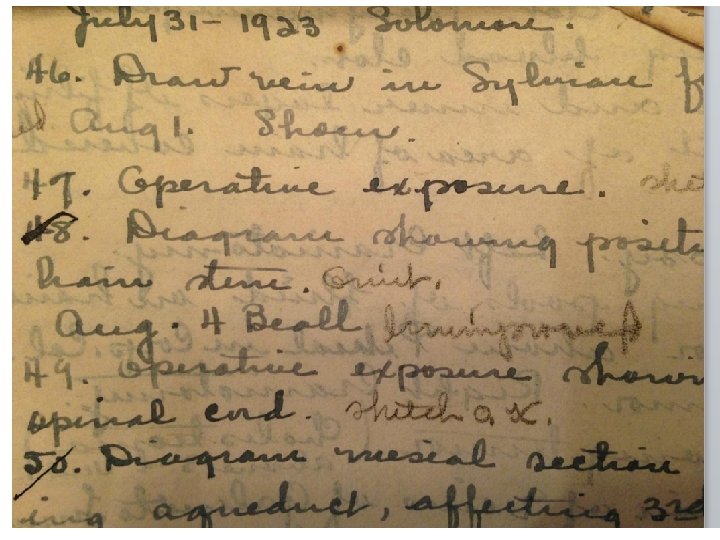 July 31 - 1923 Solomon.
46. Draw vein in Sylvian f
Aug 1. Shaw.
47. Operative exposure. ske
48. Diagram showing positi
brain stem. Omit.
Aug. 4 Beall Unimproved
49. Operative exposure showin
spinal cord. sketch O.K.
50. Diagram mesial section
ing aqueduct, affecting 3rd